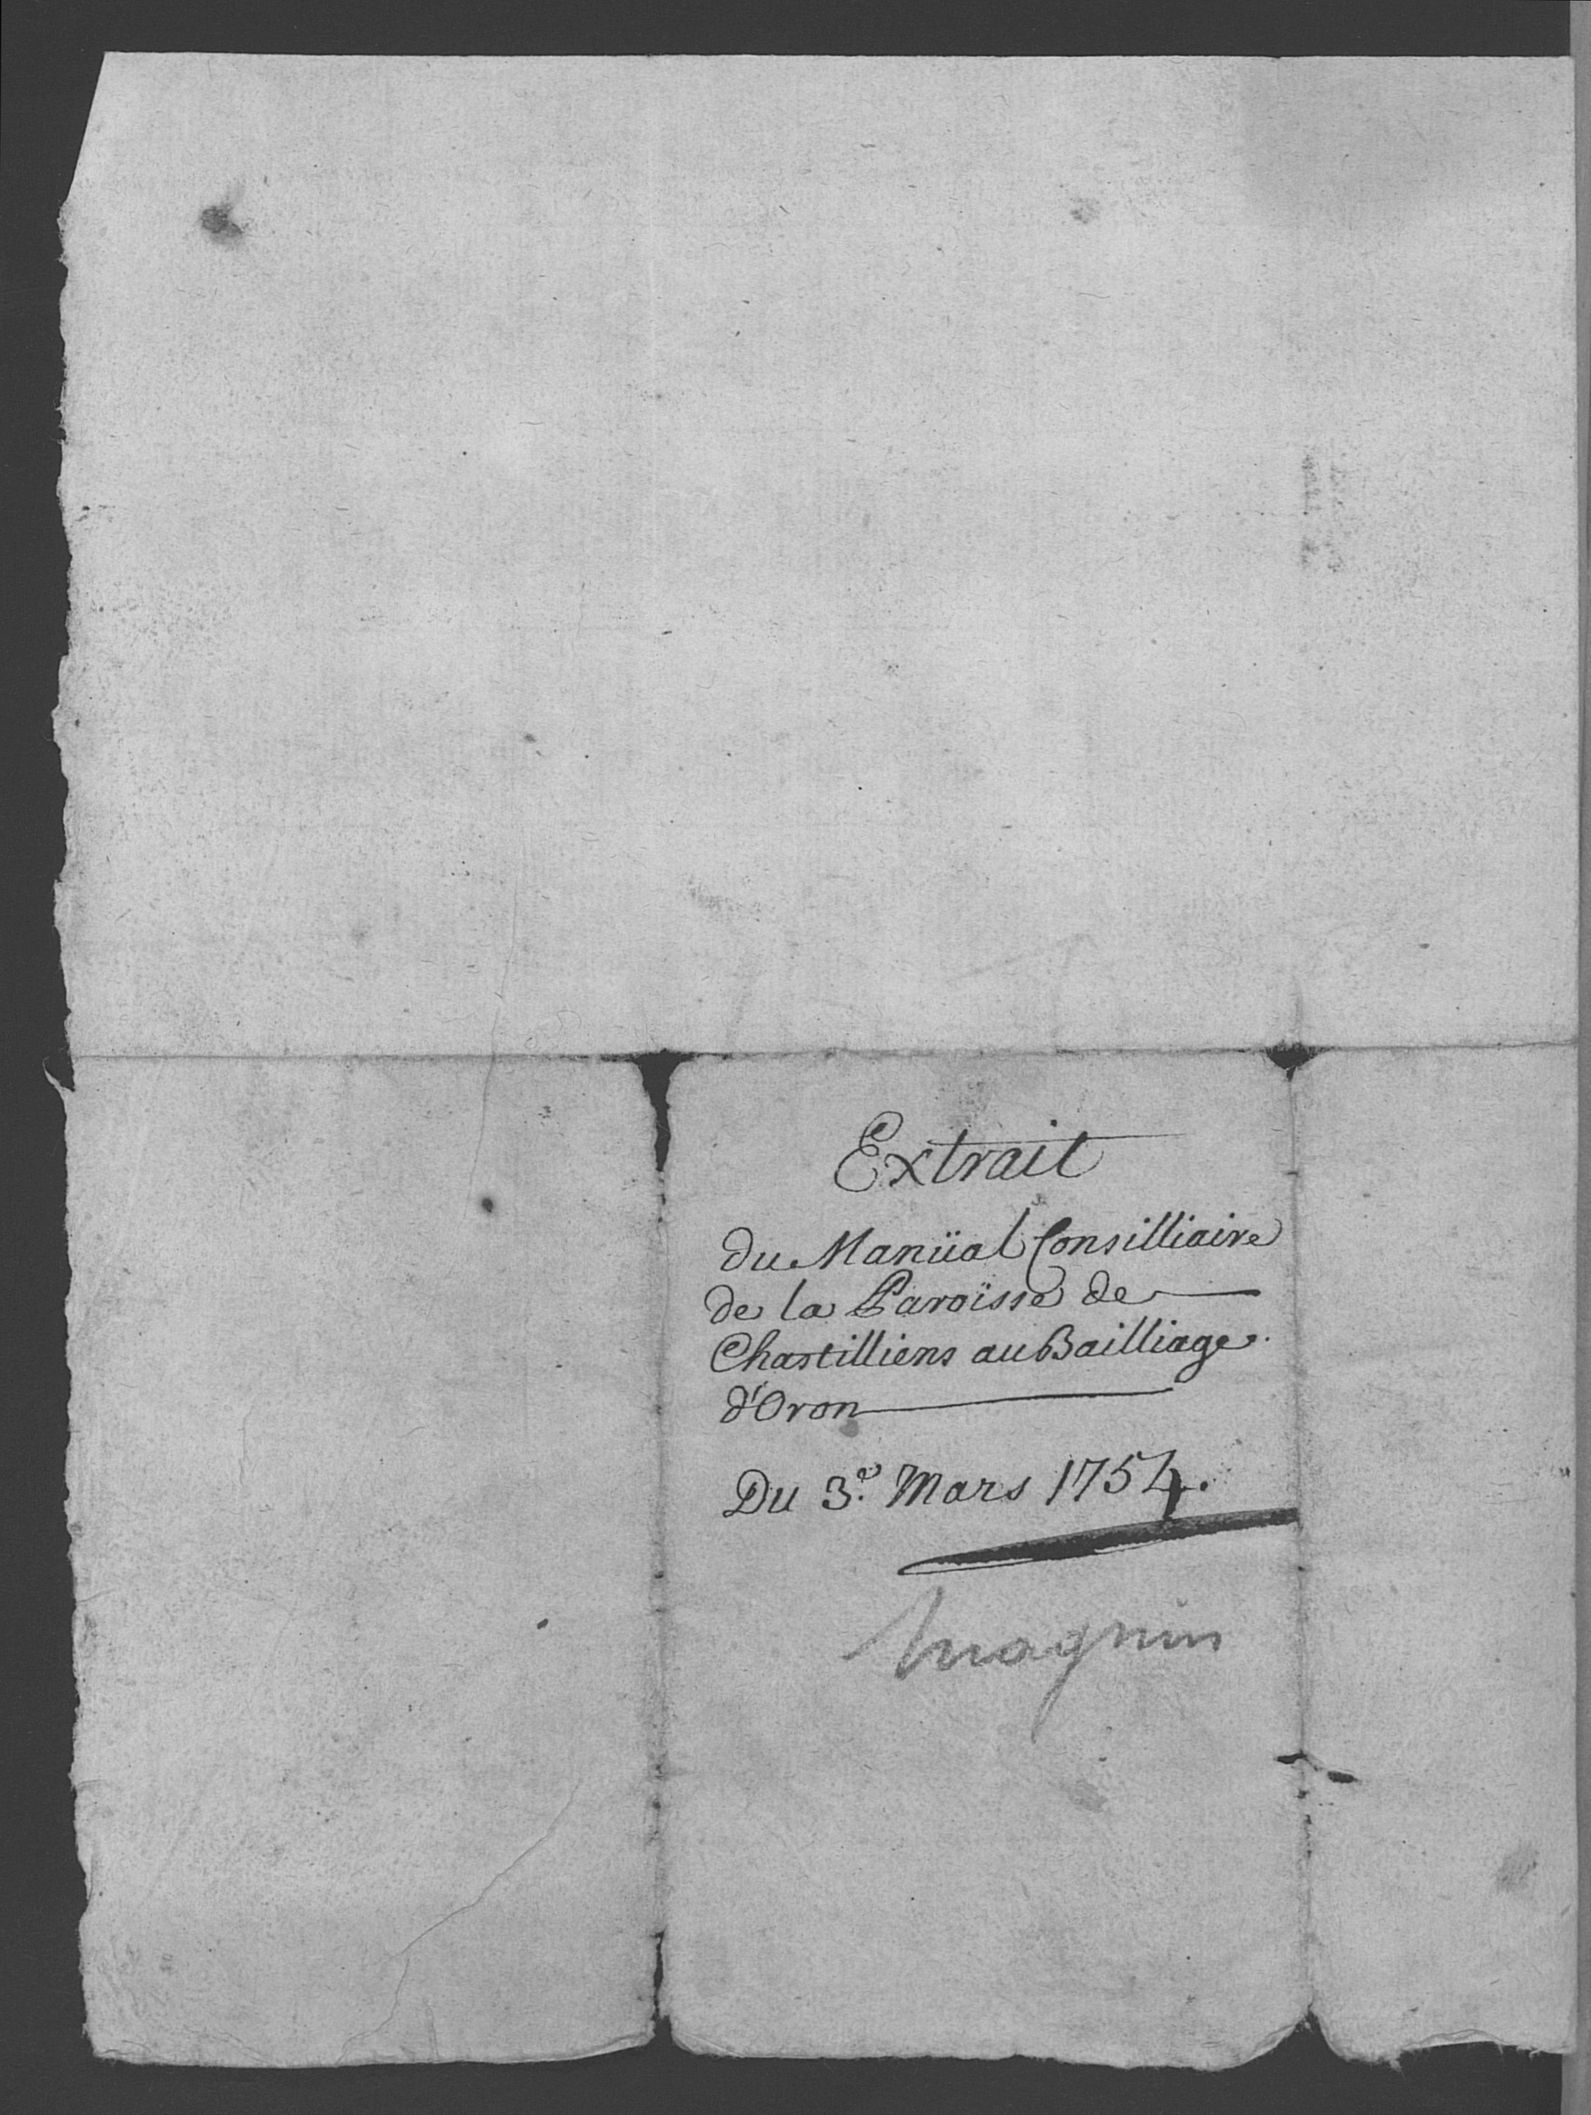 Extrait
du Manüal Consilliaire
de la Paroïsse de
Chastilliens au Bailliage
d'Oron
Du 3.e Mars 1754.
Magnin